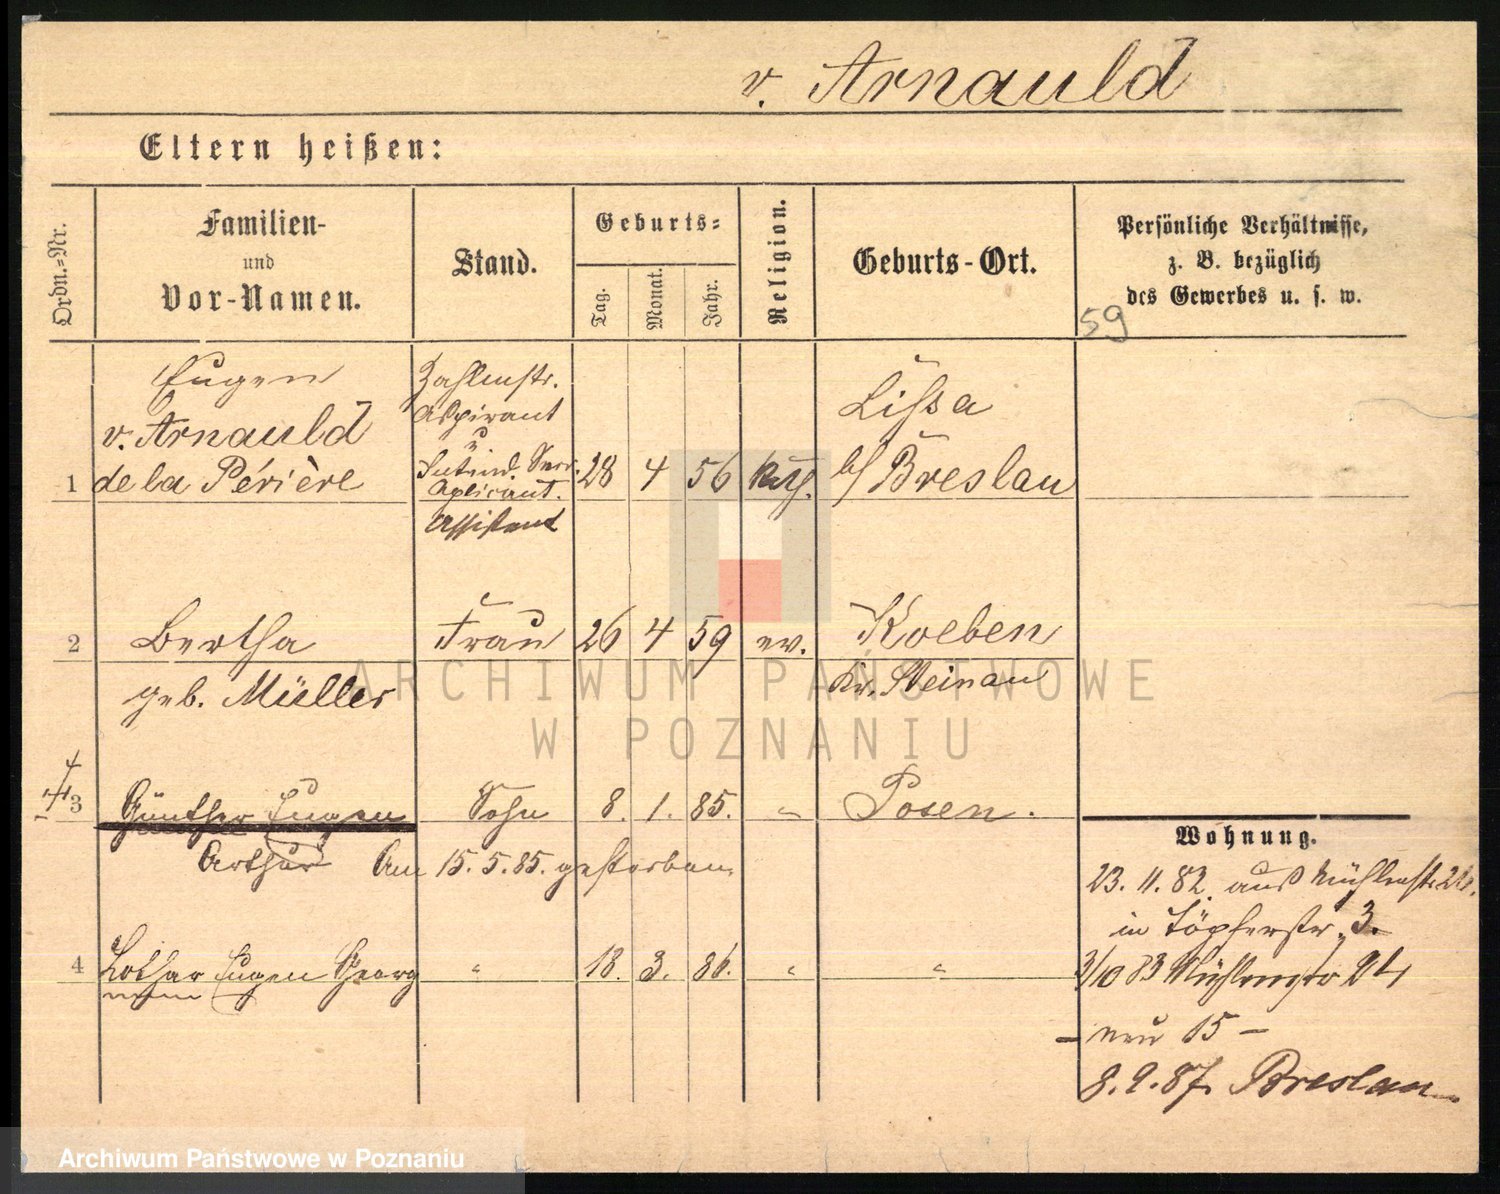 v. Arnauld
Eltern heißen:
Ordn.-Nr.
Familien-
und
Vor-Namen.
Stand.
Geburts-
Tag.
Monat.
Jahr.
Religion.
Geburts-Ort.
Persönliche Verhältnisse,
z. B. bezüglich
des Gewerbes u. s. w.
59
Eugen
v. Arnauld
de la Périère
Zahlmstr.
Aspirant
Assistent
1
28 4 56 kath.
Lissa
b/ Breslau
2
Bertha
geb. Müller
Frau
26 4 59 ev.
Koeben
Kr. Steinau
3
Günther Eugen
Arthur
Sohn
8. 1. 85. "
Posen.
Am 15. 5. 85. gestorben
4
Lothar Eugen Georg
" 18. 3. 86. " "
Wohnung.
23. 11. 82. aus Mühlenstr.
in Töpferstr. 3.
3/10 83 Mühlenstr 24
- neu 15 -
8. 9. 87. Breslau
ARCHIWUM PAŃSTWOWE
W POZNANIU
Archiwum Państwowe w Poznaniu